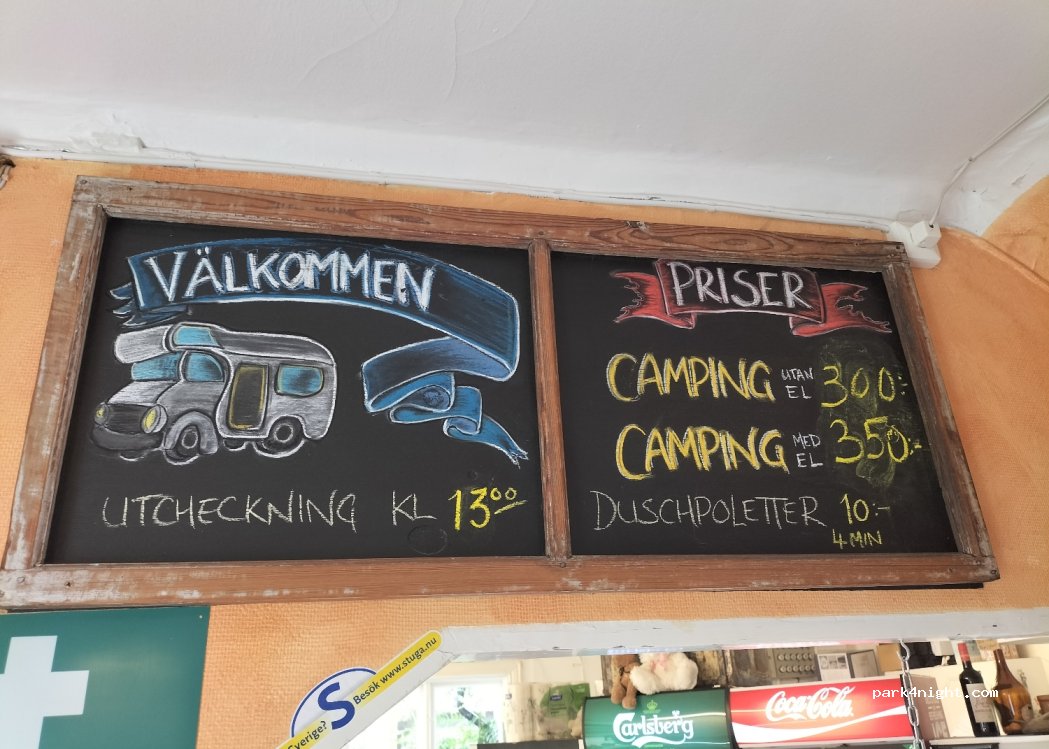 VÄLKOMMEN
UTCHECKNING KL 13⁰⁰
PRISER
CAMPING UTAN EL 300:-
CAMPING MED EL 350:-
DUSCHPOLETTER 10:-
4 MIN
S
Sverige? Besök www.stuga.nu
Carlsberg
Coca-Cola
park4night.com